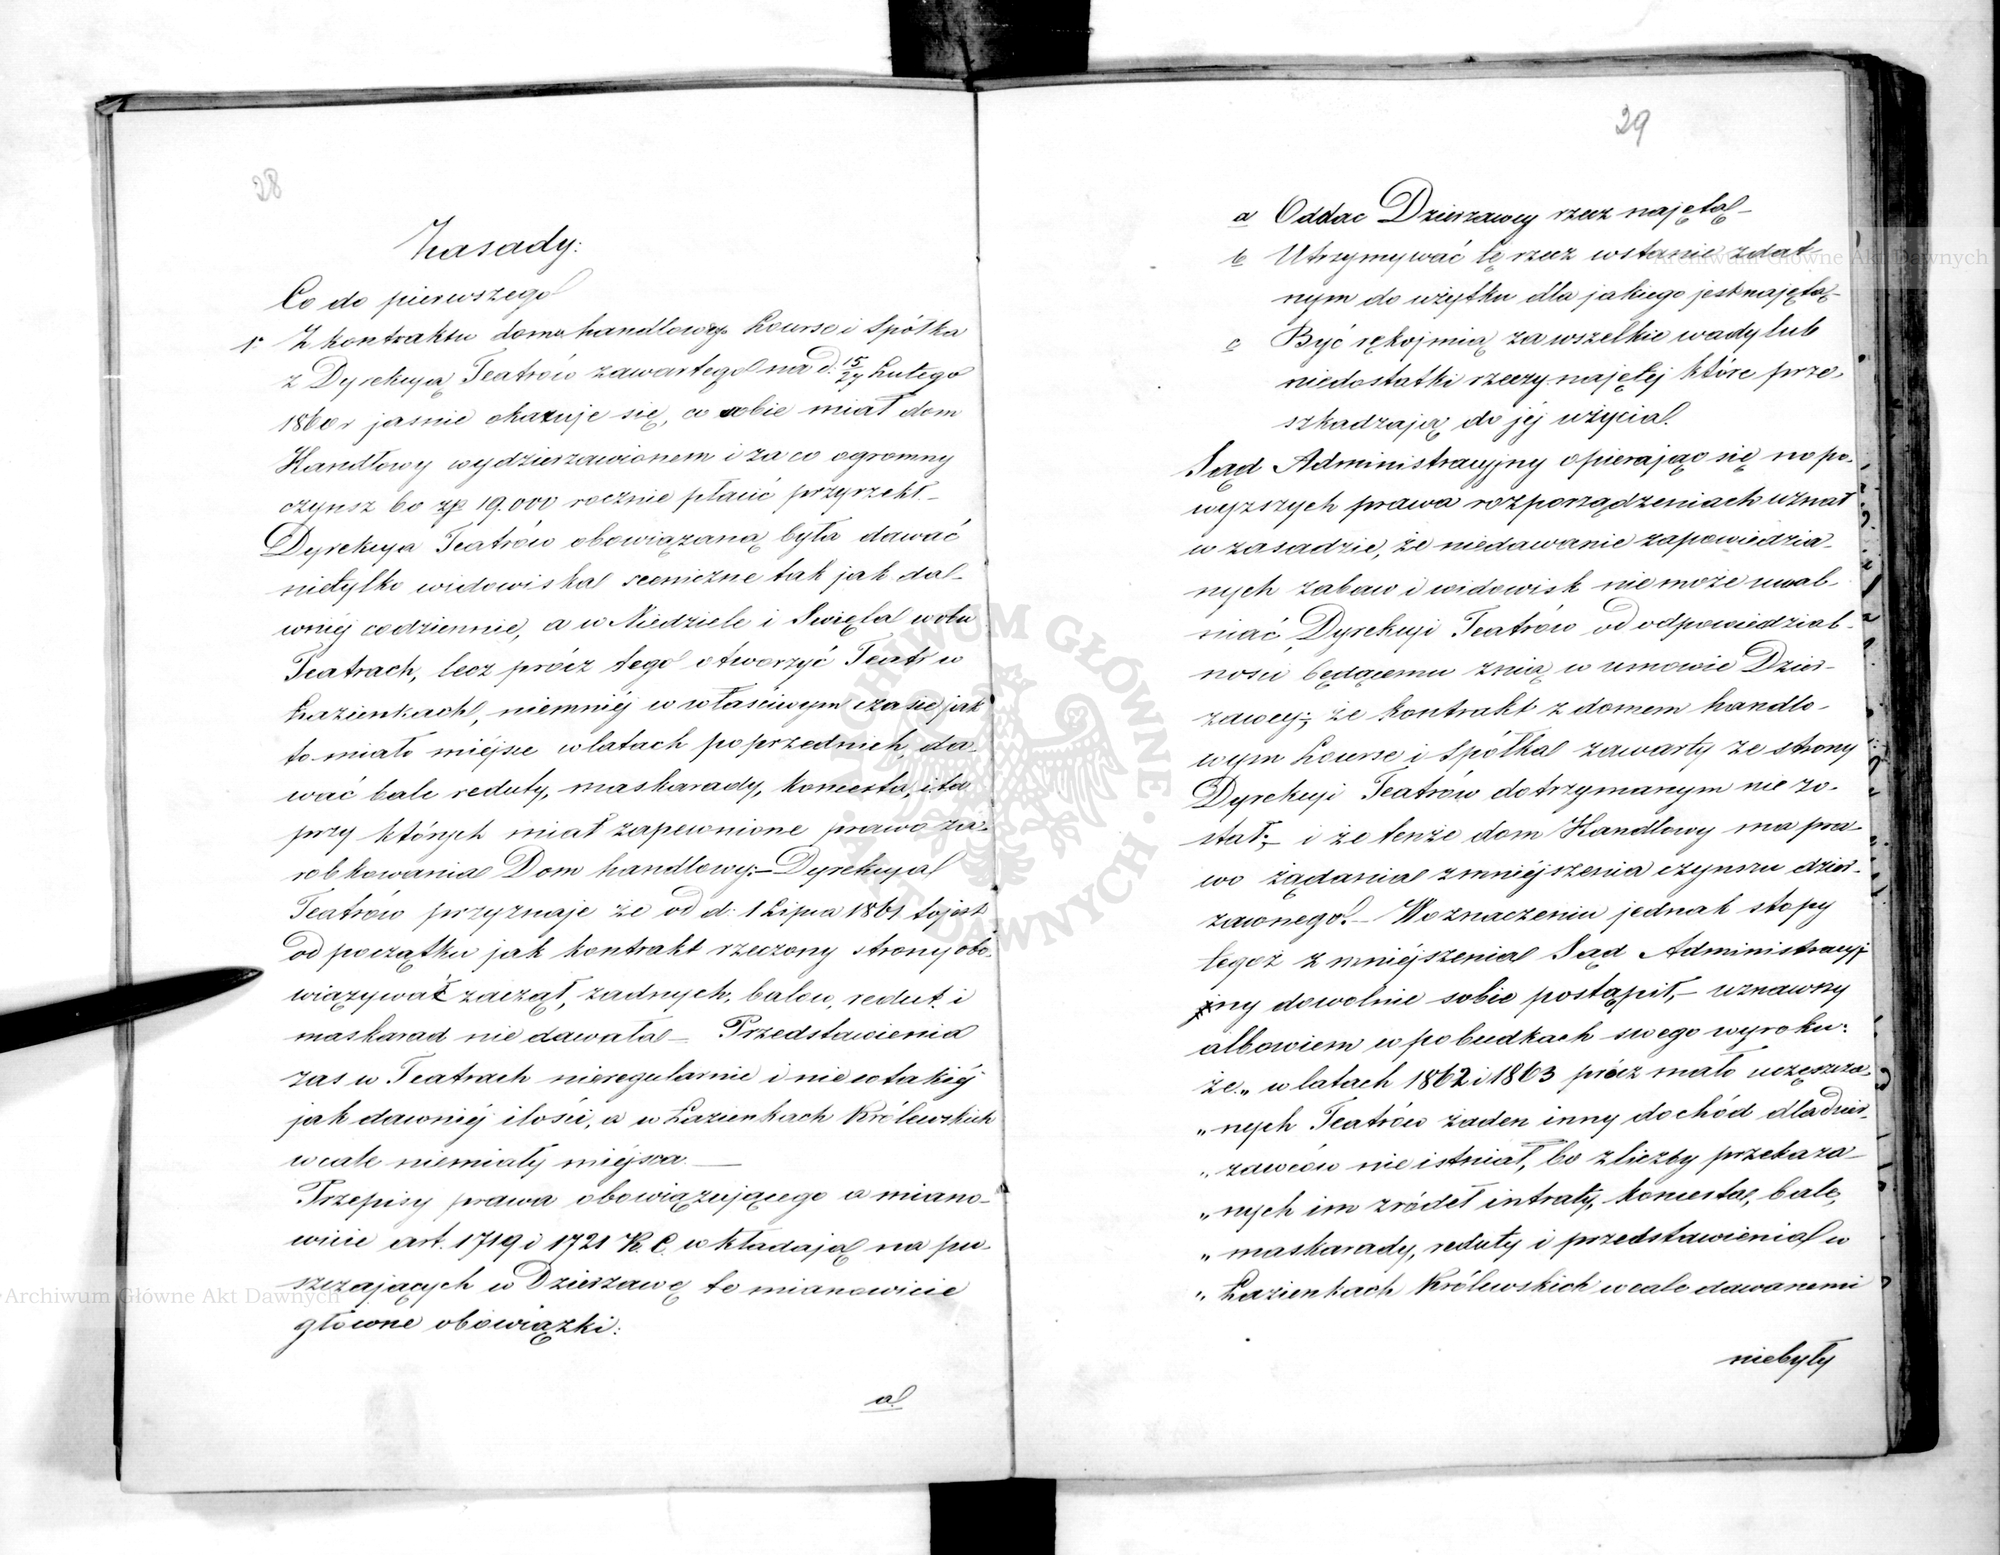 28
Zasady:
Co do pierwszego
1° Z kontraktu domu handlowego Lourse i Spółka
z Dyrekcyą Teatrów zawartego na d. 15/27 Lutego
1860 r jasnie okazuje się, co sobie miał dom
Handlowy wydzierzawionem i za co ogromny
czynsz bo zp 19.000 rocznie płacić przyrzekł_
Dyrekcya Teatrów obowiązaną była dawać
nietylko widowiska sceniczne tak jak da-
wniej codziennie, a w Niedziele i Swięta w obu
Teatrach, lecz prócz tego otworzyć Teatr w
Łazienkach, niemniéj w właściwym czasie jak
to miało miéjsce w latach poprzednich, da-
wać bale reduty, maskarady, koncerta, i ta
przy których miał zapewnione prawo za-
robkowania Dom handlowy;– Dyrekcya
Teatrów przyznaje że od d: 1 Lipca 1861 to jest
od początku jak kontrakt rzeczony strony obo-
wiązywać zaczął, zadnych, balow, redut i
maskarad nie dawała – Przedstawienia
zas w Teatrach nieregularnie i nie w takiéj
jak dawniéj ilości, a w Łazienkach Królewskich
wcale niemiały miéjsca —
Przepisy prawa obowiązującego a miano-
wicie art. 1719 i 1721 K. C. wkładają na pu-
szczających w Dzierzawę te mianowicie
główne obowiązki:
a
29
a Oddac Dzierzawcy rzecz najętą –
b Utrzymywać tę rzecz w stanie zdat-
nym do użytku dla jakiego jest najętą –
c Być rękojmią za wszelkie wady lub
niedostatki rzeczy najętéj które prze-
szkadzają do jéj użycia.
Sąd Administracyjny opierając się na po-
wyzszych prawa rozporządzeniach uznał
w zasadzie, że niedawanie zapowiedzia-
nych zabaw i widowisk nie może uwal-
niać Dyrekcyi Teatrów od odpowiedzial-
nosci będącemu z nią w umowie Dzier-
zawcy;, że kontrakt z domem handlo-
wym Lourse i Spółka zawarty ze strony
Dyrekcyi Teatrów dotrzymanym nie zo-
stał;– i że tenże dom Handlowy ma pra-
wo żądania zmniéjszenia czynszu dzier-
zawnego. – W oznaczeniu jednak stopy
tegoż zmniéjszenia Sąd Administracyj-
ny dowolnie sobie postąpił, – uznawszy
albowiem w pobudkach swego wyroku:
że „w latach 1862 i 1863 prócz mało uczęszcza-
„nych Teatrów żaden inny dochód dla Dzier-
„zawców nie istniał, bo z liczby przekaza-
„nych im zródeł intraty, koncerta, bale,
„maskarady, reduty i przedstawienia w
„Łazienkach Królewskich wcale dawanemi
niebyły
Archiwum Główne Akt Dawnych
Archiwum Główne Akt Dawnych
ARCHIWUM GŁÓWNE AKT DAWNYCH